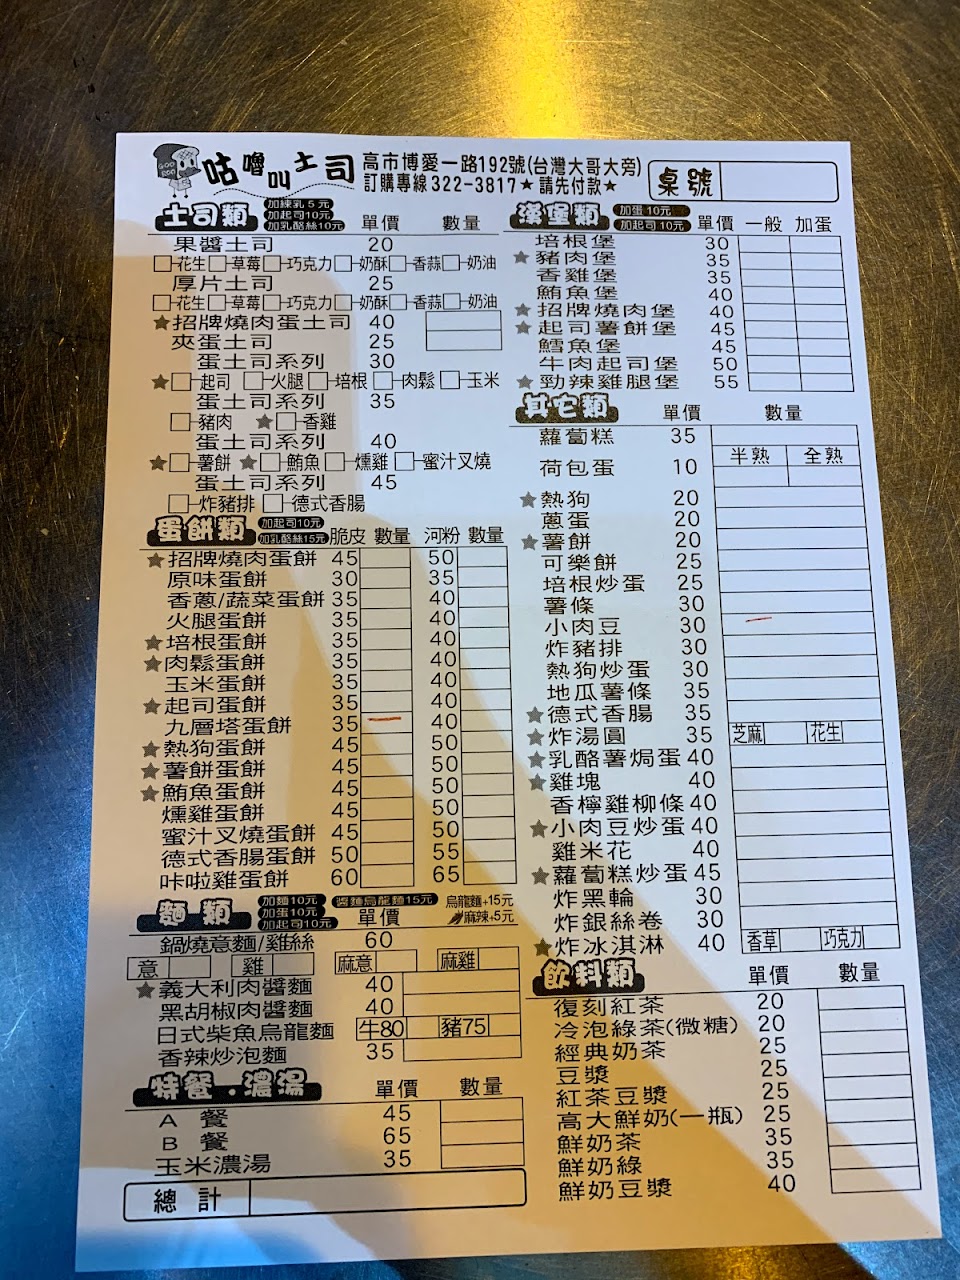 咕嚕叫土司
高市博愛一路192號(台灣大哥大旁)
訂購專線322-3817★請先付款★
桌號
土司類 加練乳5元 加起司10元 加乳酪絲10元 單價 數量
果醬土司 20
□花生□草莓□巧克力□奶酥□香蒜□奶油
厚片土司 25
□花生□草莓□巧克力□奶酥□香蒜□奶油
★招牌燒肉蛋土司 40
夾蛋土司 25
蛋土司系列 30
★□起司 □火腿□培根□肉鬆□玉米
蛋土司系列 35
□豬肉 ★□香雞
蛋土司系列 40
★□薯餅★□鮪魚□燻雞□蜜汁叉燒
蛋土司系列 45
□炸豬排 □德式香腸
蛋餅類 加起司10元 加乳酪絲15元 脆皮 數量 河粉 數量
★招牌燒肉蛋餅 45 50
原味蛋餅 30 35
香蔥/蔬菜蛋餅 35 40
火腿蛋餅 35 40
★培根蛋餅 35 40
★肉鬆蛋餅 35 40
玉米蛋餅 35 40
★起司蛋餅 35 40
九層塔蛋餅 35 40
★熱狗蛋餅 45 50
★薯餅蛋餅 45 50
★鮪魚蛋餅 45 50
燻雞蛋餅 45 50
蜜汁叉燒蛋餅 45 50
德式香腸蛋餅 50 55
咔啦雞蛋餅 60 65
麵類 加麵10元 加蛋10元 加起司10元 醬麵烏龍麵15元 烏龍麵+15元 麻辣+5元 單價
鍋燒意麵/雞絲 60
意 雞 麻意 麻雞
★義大利肉醬麵 40
黑胡椒肉醬麵 40
日式柴魚烏龍麵 牛80 豬75
香辣炒泡麵 35
特餐．濃湯 單價 數量
A 餐 45
B 餐 65
玉米濃湯 35
總計
漢堡類 加蛋10元 加起司10元 單價 一般 加蛋
培根堡 30
★豬肉堡 35
香雞堡 35
鮪魚堡 40
★招牌燒肉堡 40
★起司薯餅堡 45
鱈魚堡 45
牛肉起司堡 50
★勁辣雞腿堡 55
其它類 單價 數量
蘿蔔糕 35
荷包蛋 10 半熟 全熟
★熱狗 20
蔥蛋 20
★薯餅 20
可樂餅 25
培根炒蛋 25
薯條 30
小肉豆 30
炸豬排 30
熱狗炒蛋 30
地瓜薯條 35
★德式香腸 35
★炸湯圓 35 芝麻 花生
★乳酪薯焗蛋 40
★雞塊 40
香檸雞柳條 40
★小肉豆炒蛋 40
雞米花 40
★蘿蔔糕炒蛋 45
炸黑輪 30
炸銀絲卷 30
★炸冰淇淋 40 香草 巧克力
飲料類 單價 數量
復刻紅茶 20
冷泡綠茶(微糖) 20
經典奶茶 25
豆漿 25
紅茶豆漿 25
高大鮮奶(一瓶) 25
鮮奶茶 35
鮮奶綠 35
鮮奶豆漿 40